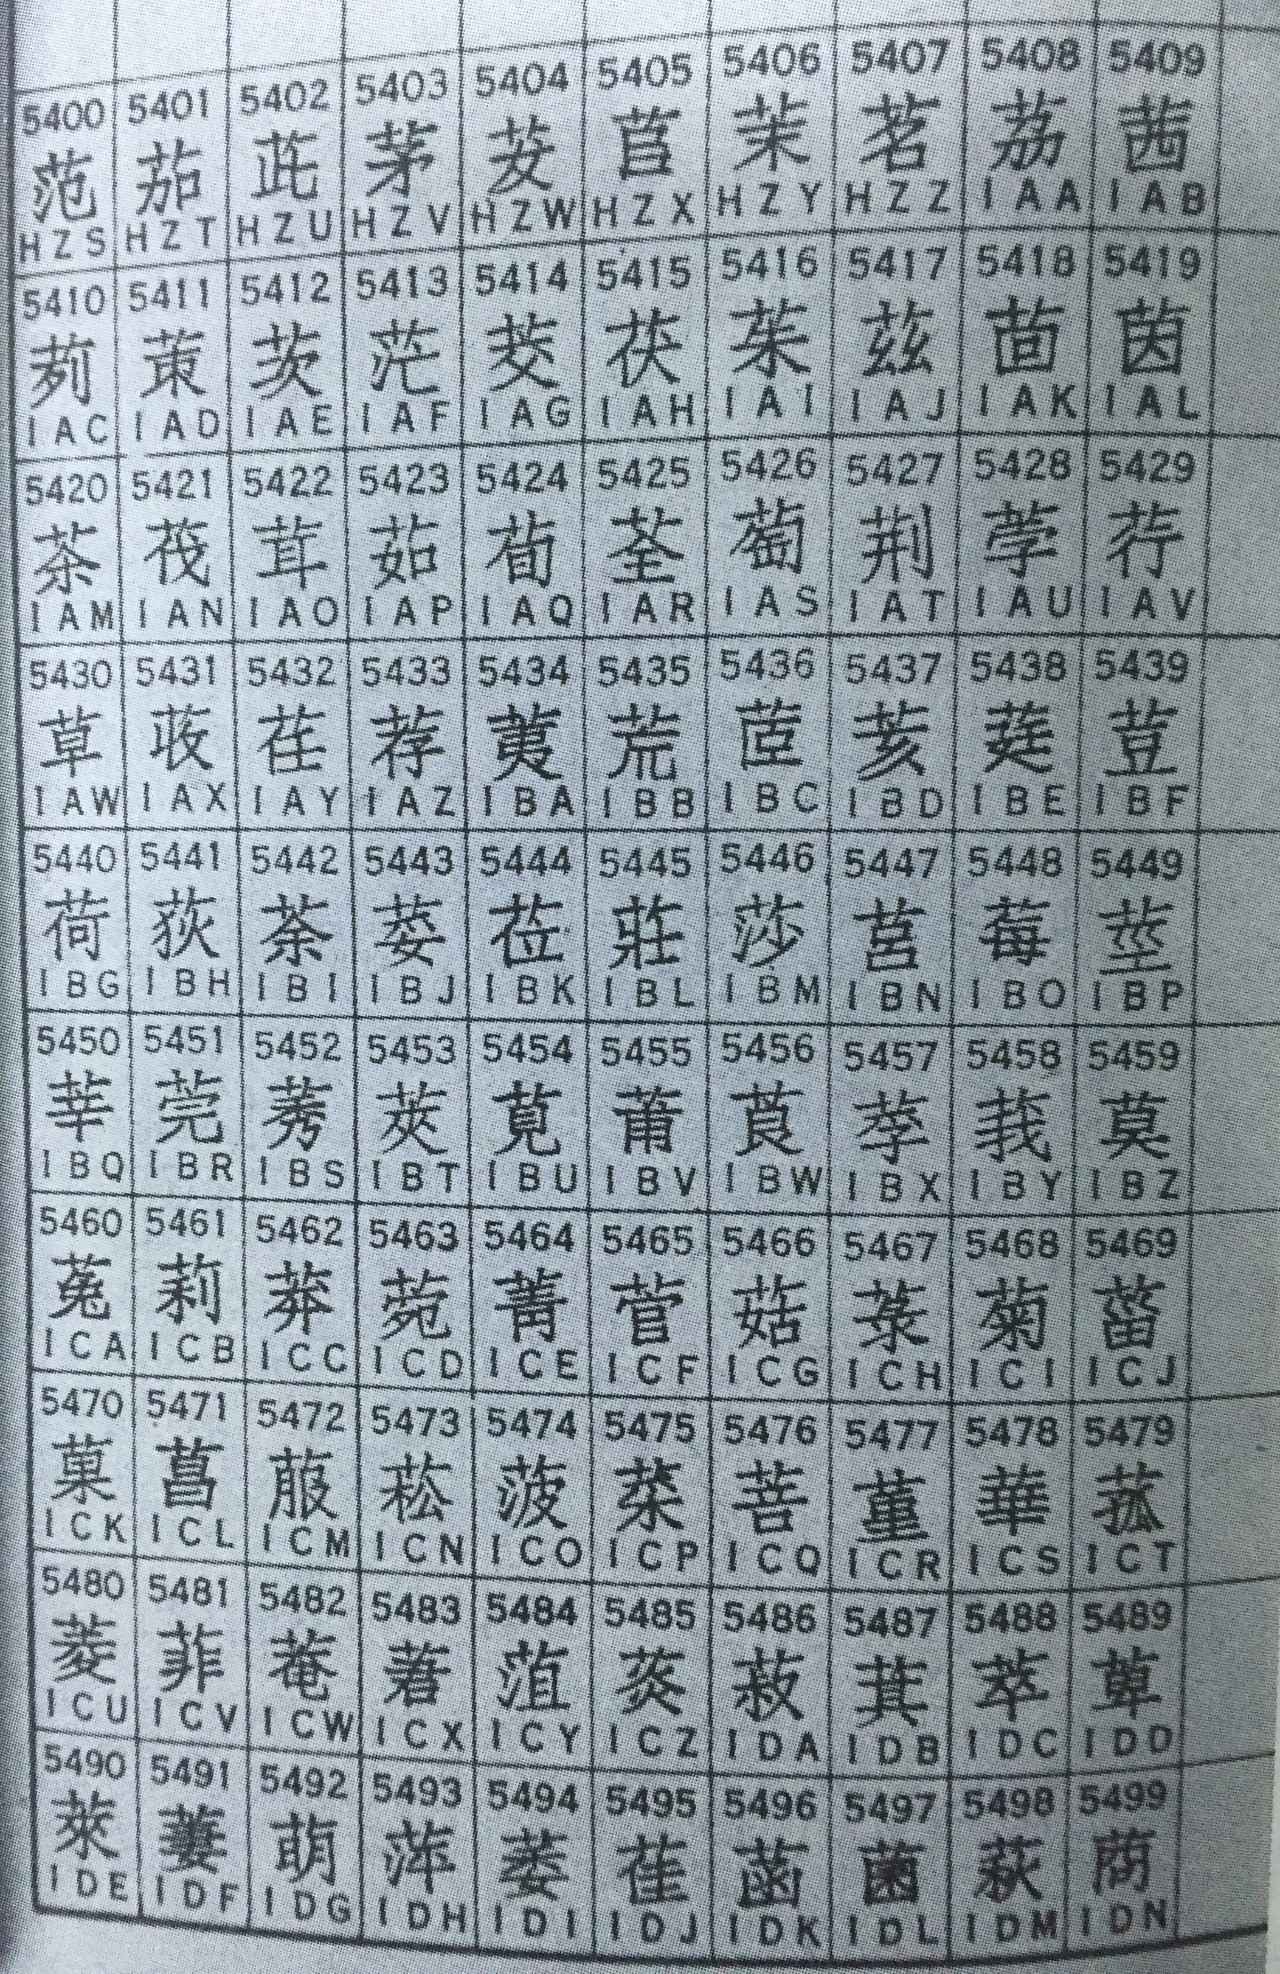 5400 5401 5402 5403 5404 5405 5406 5407 5408 5409
范 茄 茈 茅 茇 苜 茉 茗 荔 茜
HZS HZT HZU HZV HZW HZX HZY HZZ IAA IAB
5410 5411 5412 5413 5414 5415 5416 5417 5418 5419
茢 茦 茨 茫 茭 茯 茱 茲 茴 茵
IAC IAD IAE IAF IAG IAH IAI IAJ IAK IAL
5420 5421 5422 5423 5424 5425 5426 5427 5428 5429
茶 茷 茸 茹 荀 荃 荊 荇
IAM IAN IAO IAP IAQ IAR IAS IAT IAU IAV
5430 5431 5432 5433 5434 5435 5436 5437 5438 5439
草 荏 荐 荑 荒 荄 莛 荳
IAW IAX IAY IAZ IBA IBB IBC IBD IBE IBF
5440 5441 5442 5443 5444 5445 5446 5447 5448 5449
荷 荻 荼 荽 莅 莊 莎 莒 莓 莖
IBG IBH IBI IBJ IBK IBL IBM IBN IBO IBP
5450 5451 5452 5453 5454 5455 5456 5457 5458 5459
莘 莞 莠 莢 莧 莆 莨 莩 莪 莫
IBQ IBR IBS IBT IBU IBV IBW IBX IBY IBZ
5460 5461 5462 5463 5464 5465 5466 5467 5468 5469
菟 莉 莽 菀 菁 菅 菇 菉 菊 菑
ICA ICB ICC ICD ICE ICF ICG ICH ICI ICJ
5470 5471 5472 5473 5474 5475 5476 5477 5478 5479
菓 菖 菔 菘 菠 菜 菩 菫 華 菰
ICK ICL ICM ICN ICO ICP ICQ ICR ICS ICT
5480 5481 5482 5483 5484 5485 5486 5487 5488 5489
菱 菲 菴 菹 菼 菽 萁 萃 萆
ICU ICV ICW ICX ICY ICZ IDA IDB IDC IDD
5490 5491 5492 5493 5494 5495 5496 5497 5498 5499
萊 萋 萌 萍 萎 萑 菡 菌 萩
IDE IDF IDG IDH IDI IDJ IDK IDL IDM IDN